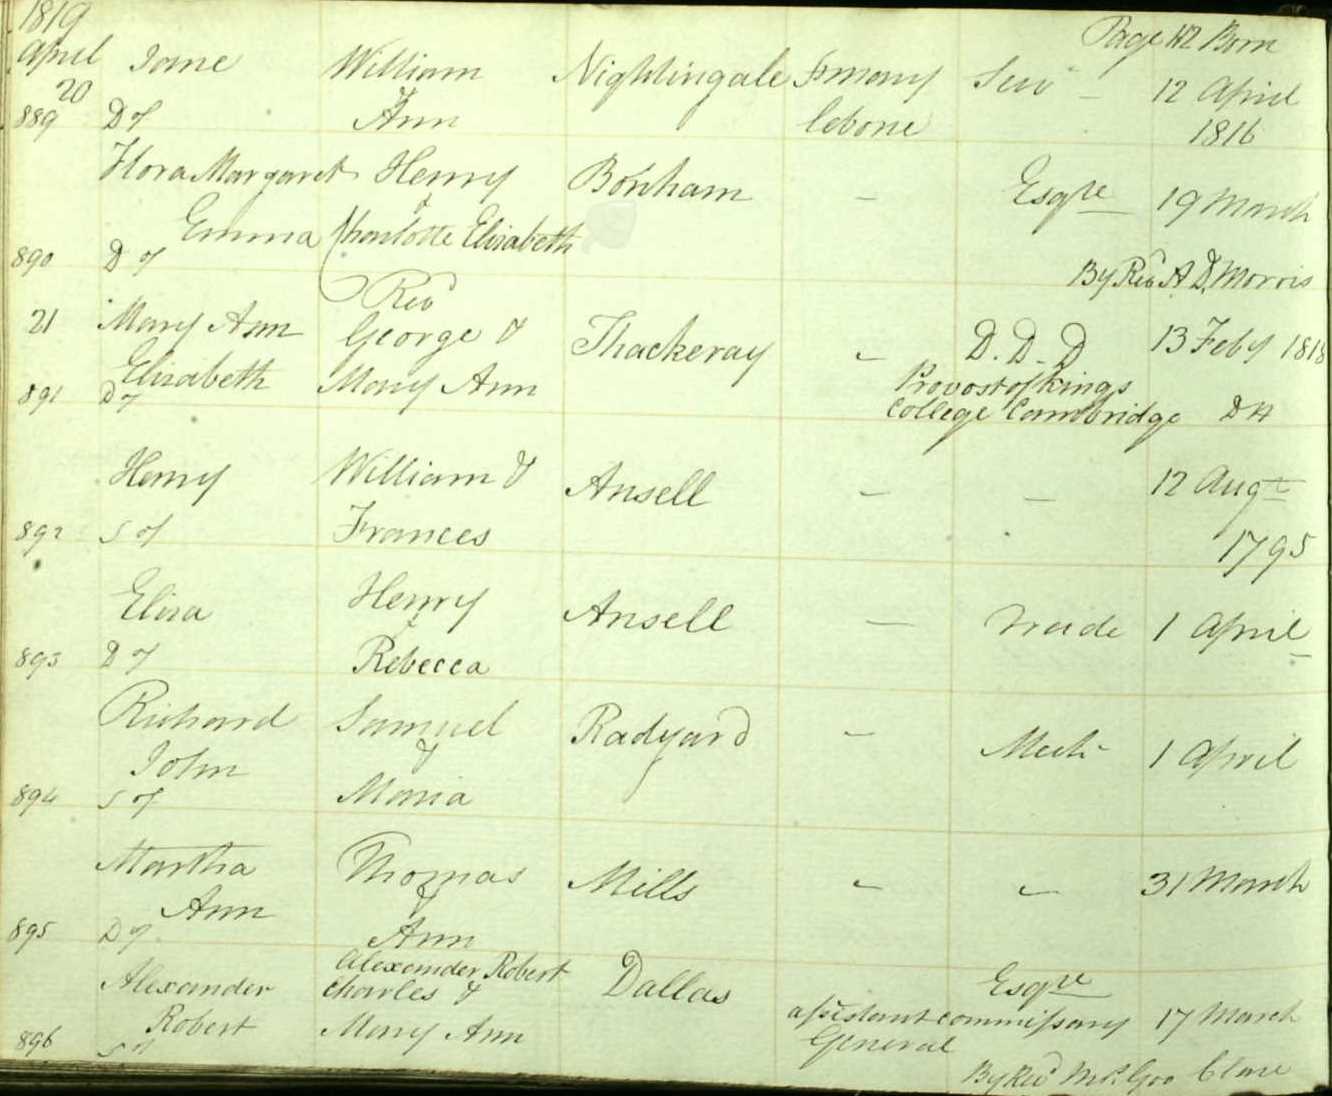 1819 Page 112 Born
April Jane William Nightingale St mary Serv 12 April
20 &
889 D of Ann lebone 1816
Flora Margaret Henry Bonham - Esqre 19 March
&
Emma Charlotte Elizabeth
890 D of By Revd A D. Morris
Revd
21 Mary Ann George & Thackeray - D. D. D 13 Feby 1818
Elizabeth Mary Ann Provost of Kings
891 D of College Cambridge D H
Henry William & Ansell - - 12 Augt
892 S of Frances 1795
Eliza Henry Ansell - Trade 1 April
&
893 D of Rebecca
Richard Samuel Radyard - Mech 1 April
John &
894 S of Maria
Martha Thomas Mills - - 31 March
Ann &
895 D of Ann
Alexander Robert Dallas Esqre
Alexander Charles & assistant commissary 17 March
Robert Mary Ann General
896 S of By Revd Clare